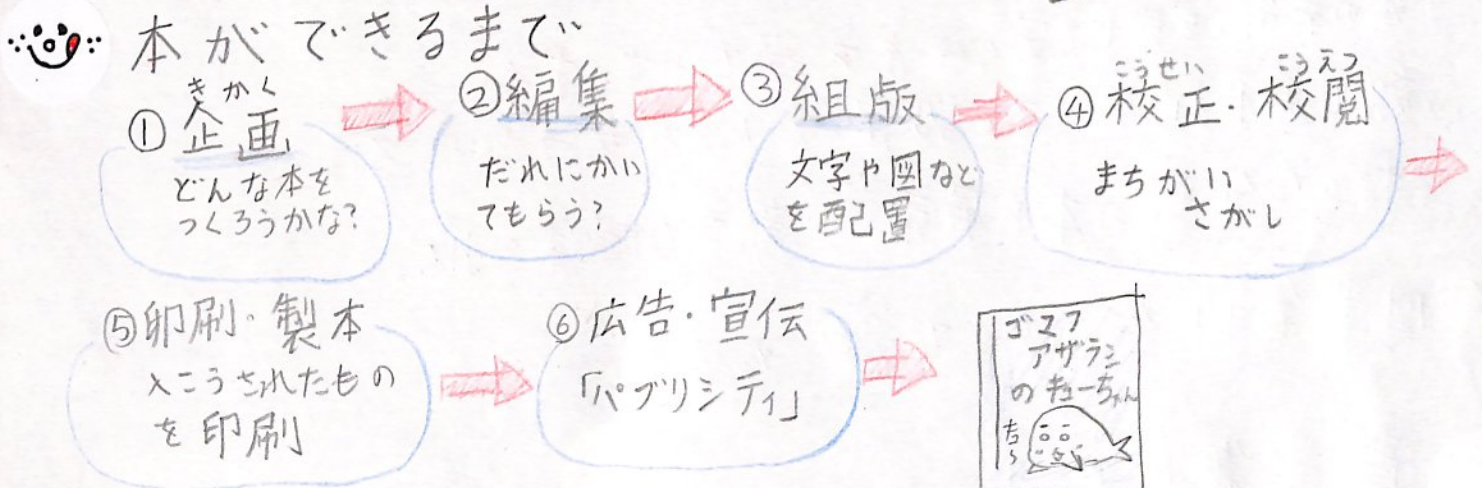 本ができるまで
きかく
①企画
どんな本を
つくろうかな?
②編集
だれにかい
てもらう?
③組版
文字や図など
を配置
こうせい こうえつ
④校正・校閲
まちがい
さがし
⑤印刷・製本
入こうされたもの
を印刷
⑥広告・宣伝
「パブリシティ」
ゴマフ
アザラシ
のキューちゃん